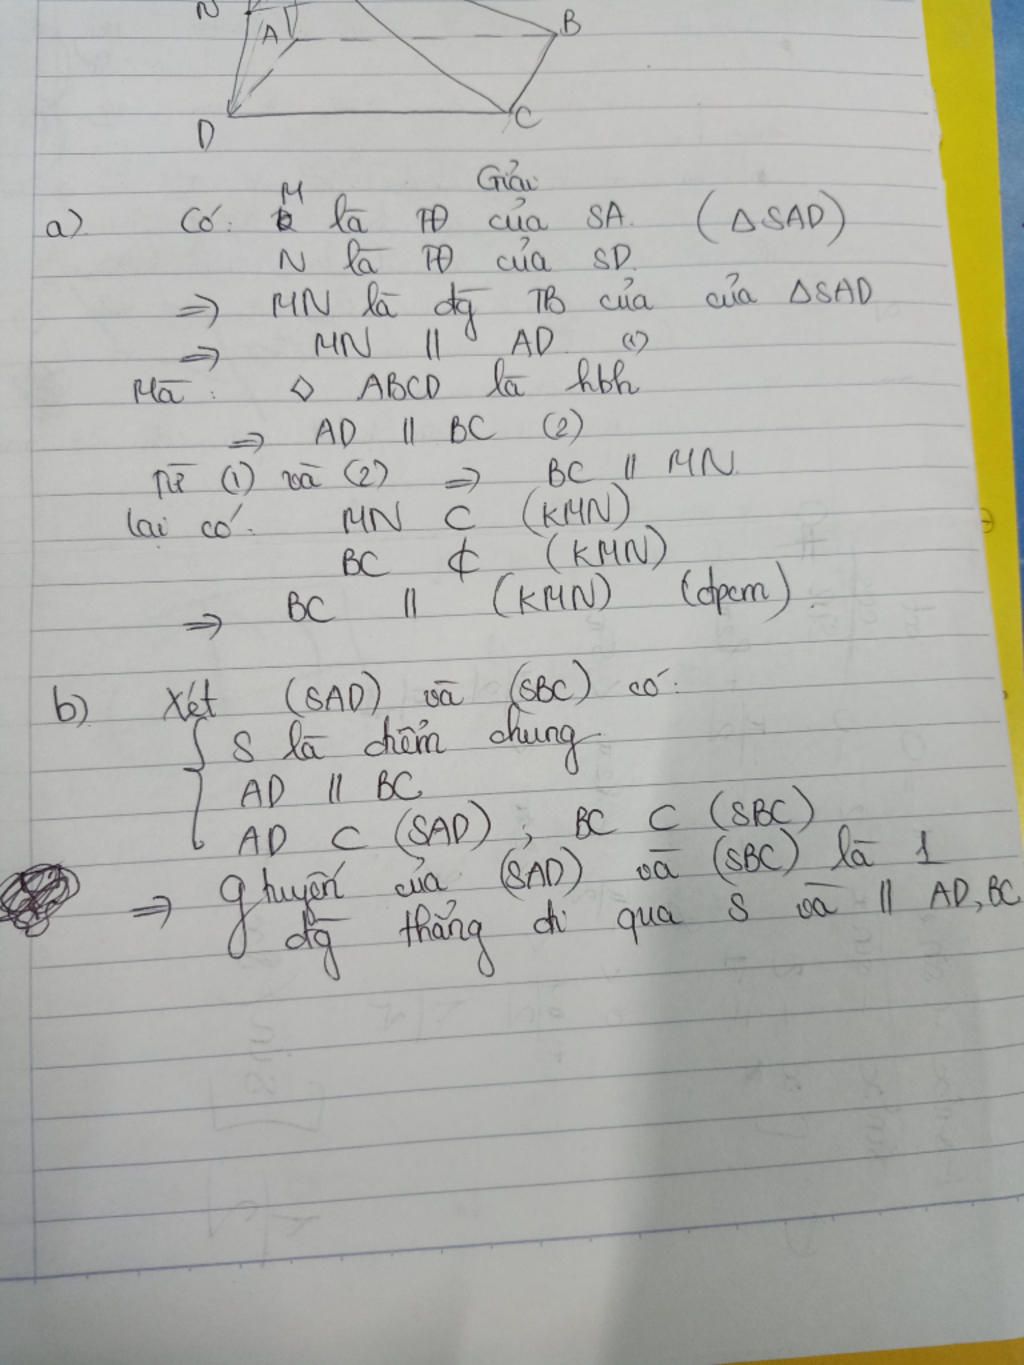 N
A
B
D
C
Giải
a) Có: M là TĐ của SA. (ΔSAD)
N là TĐ của SD.
⇒ MN là đg TB của của ΔSAD
⇒ MN // AD (1)
Mà: ◇ ABCD là hbh
⇒ AD // BC (2)
Từ (1) và (2) ⇒ BC // MN.
lại có: MN ⊂ (KMN)
BC ⊄ (KMN)
⇒ BC // (KMN) (đpcm).
b) Xét (SAD) và (SBC) có:
S là điểm chung.
AD // BC
AD ⊂ (SAD), BC ⊂ (SBC)
⇒ g tuyến của (SAD) và (SBC) là 1
đg thẳng đi qua S và // AD, BC